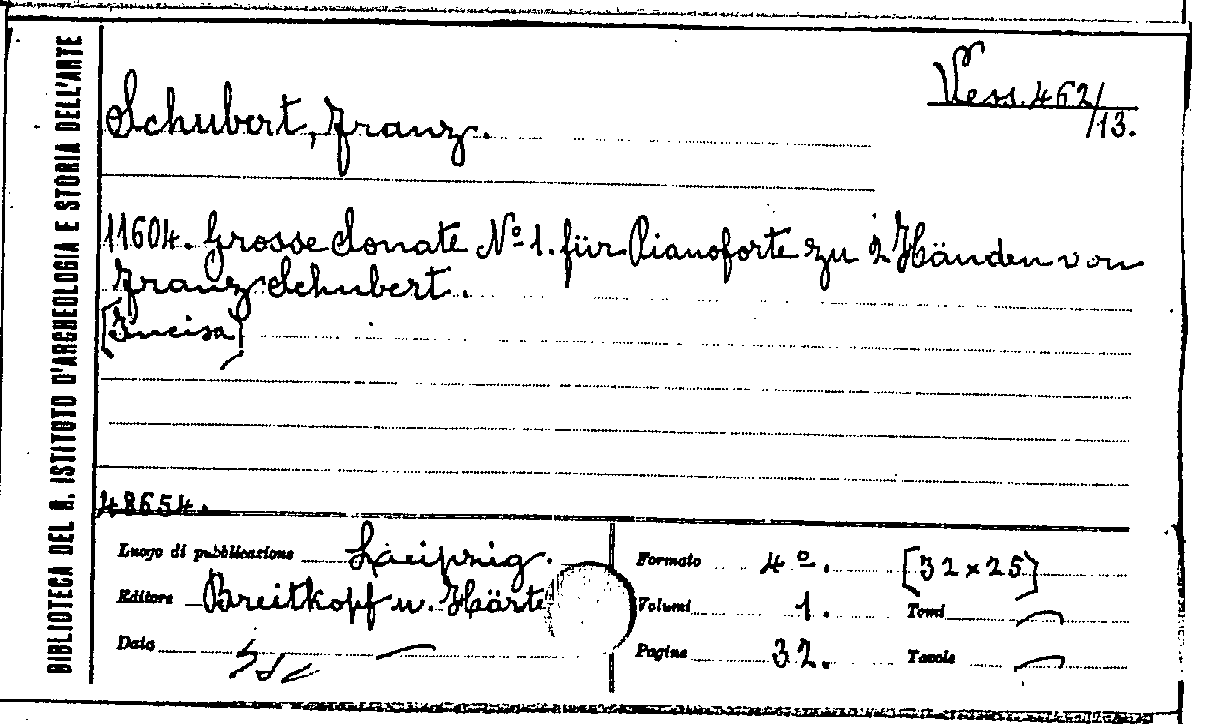 BIBLIOTECA DEL R. ISTITUTO D'ARCHEOLOGIA E STORIA DELL'ARTE
Vess. 462/
/13.
Schubert, Franz.
11604. Grosse Sonate Nº 1. für Pianoforte zu 2 Händen von
Franz Schubert.
[Incisa]
48654.
Luogo di pubblicazione Laeipzig. Formato 4º. [32 x 25]
Editore Breitkopf u. Härte Volumi 1. Tomi —
Data — Pagine 32. Tavole —